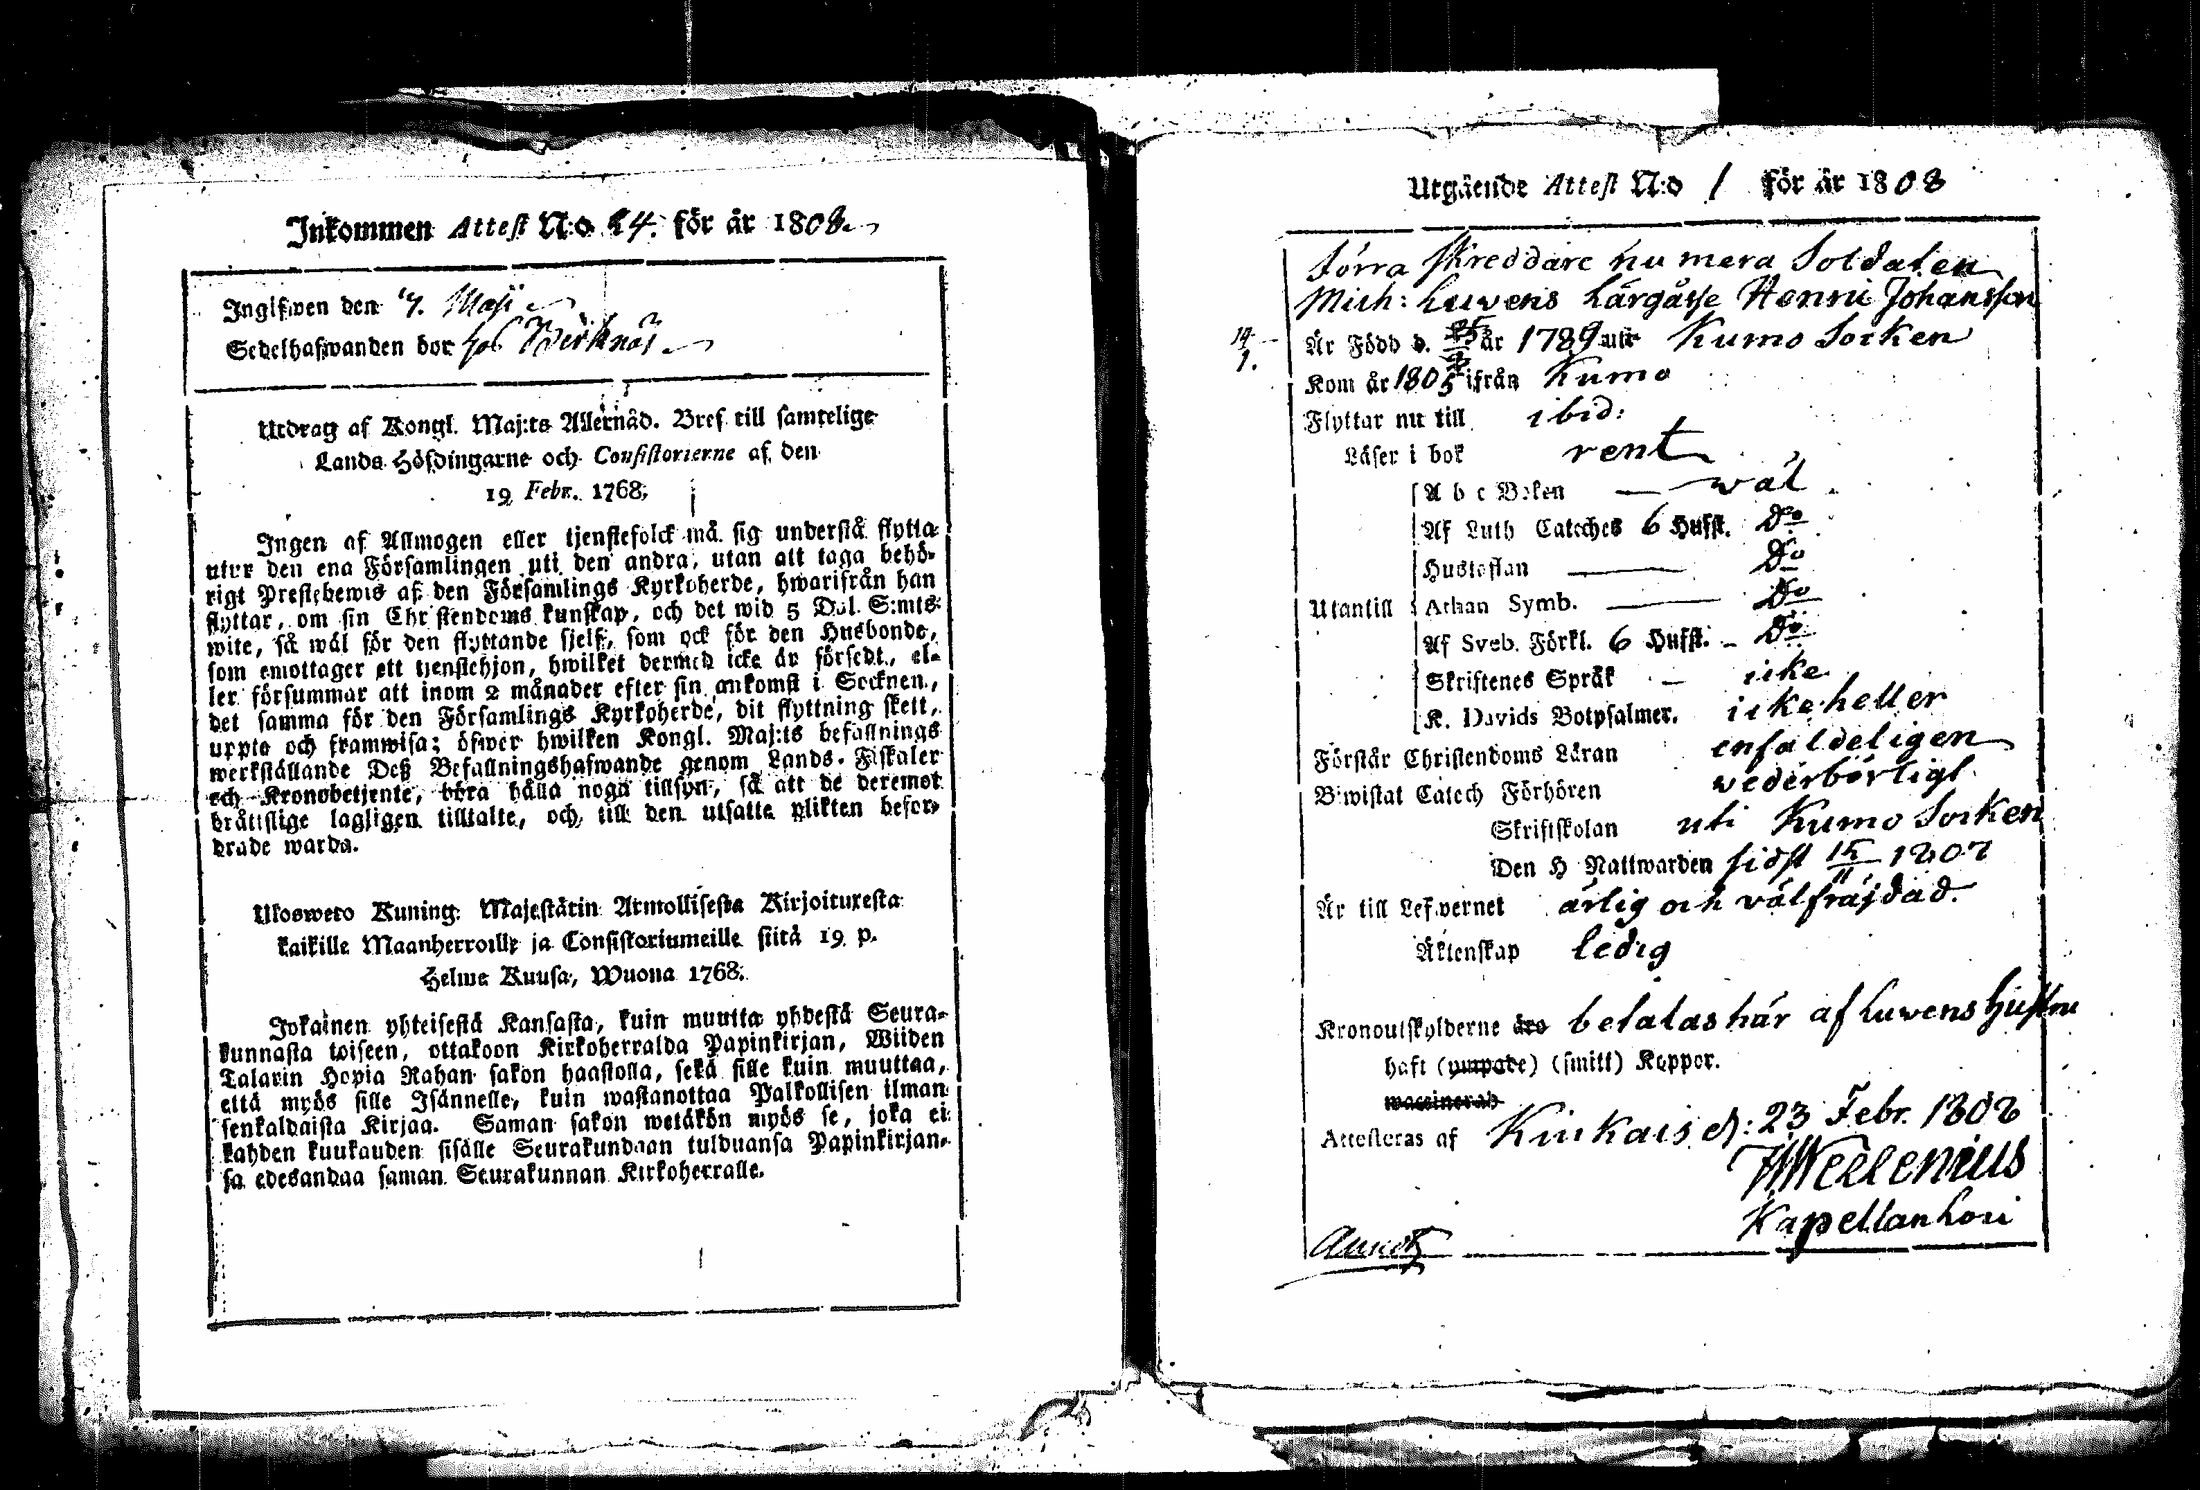 Inkommen Attest N:o 24. för år 1808.
Ingifwen den 7. Maji
Sedelhafwanden bor hos
Utdrag af Kongl. Maj:ts Allernåd. Bref till samtelige
Lands Höfdingarne och Consistorierne af den
19 Febr. 1768.
Ingen af Allmogen eller tjenstefolck må sig understå flytta
utur den ena Församlingen uti den andra, utan att taga behö-
rigt Prestebewis af den Församlings Kyrkoherde, hwarifrån han
flyttar, om sin Christendoms kunskap, och det wid 5 Dal. S:mts
wite, så wäl för den flyttande sjelf, som ock för den Husbonde,
som emottager ett tjenstehjon, hwilket dermed icke är försedt, el-
ler försummar att inom 2 månader efter sin ankomst i Socknen,
det samma för den Församlings Kyrkoherde, dit flyttning skett,
uppte och framwisa; öfwer hwilken Kongl. Maj:ts befallnings
werkställande Deß Befallningshafwande genom Lands-Fiskaler
och Kronobetjente, böra hålla noga tillsyn, så att de deremot
bråttslige lagligen tilltalte, och till den utsatta plikten befor-
drade warda.
Ulosweto Kuning. Majestätin Armollisesta Kirjoituxesta
kaikille Maanherroille ja Consistoriumeille siitä 19 p.
Helme Kuusa, Wuona 1768.
Jokainen yhteisestä Kansasta, kuin muutta yhdestä Seura-
kunnasta toiseen, ottakoon Kirkoherralda Papinkirjan, Wiiden
Talarin Hopia Rahan sakon haastolla, sekä sille kuin muuttaa,
että myös sille Isännelle, kuin wastanottaa Palkollisen ilman
senkaldaista Kirjaa. Saman sakon wetäkön myös se, joka ei
kahden kuukauden sisälle Seurakundaan tulduansa Papinkirjan-
sa edesandaa saman Seurakunnan Kirkoherralle.
Utgående Attest N:o 1 för år 1808
förra Skreddare nu mera Soldaten
Mich: Luvens Lärgåsse Henric Johansson
14
1.
Är Född d. år 1789 uti Kumo Socken
Kom år 1805 ifrån Kumo
Flyttar nu till ibid:
Läser i bok rent
A b c Boken — wäl
Af Luth Cateches 6 Hufst. Do
Hustaflan — Do
Utantill Athan Symb. — Do
Af Sveb. Förkl. 6 Hufst. - Do
Skriftenes Språk — icke
K. Davids Botpsalmer. icke heller
Förstår Christendoms Läran enfaldeligen
Biwistat Catech Förhören wederbörligt
Skriftskolan uti Kumo Socken
Den H Nattwarden sidst 15/11 1807
Är till Lefvernet ärlig och välfräjdad.
Äktenskap ledig
Kronoutskylderne äro betalas här af Luvens
haft (ympade) (smitt) Koppor.
waccinerad
Attesteras af Kiukais d: 23 Febr. 1808
Kapellan